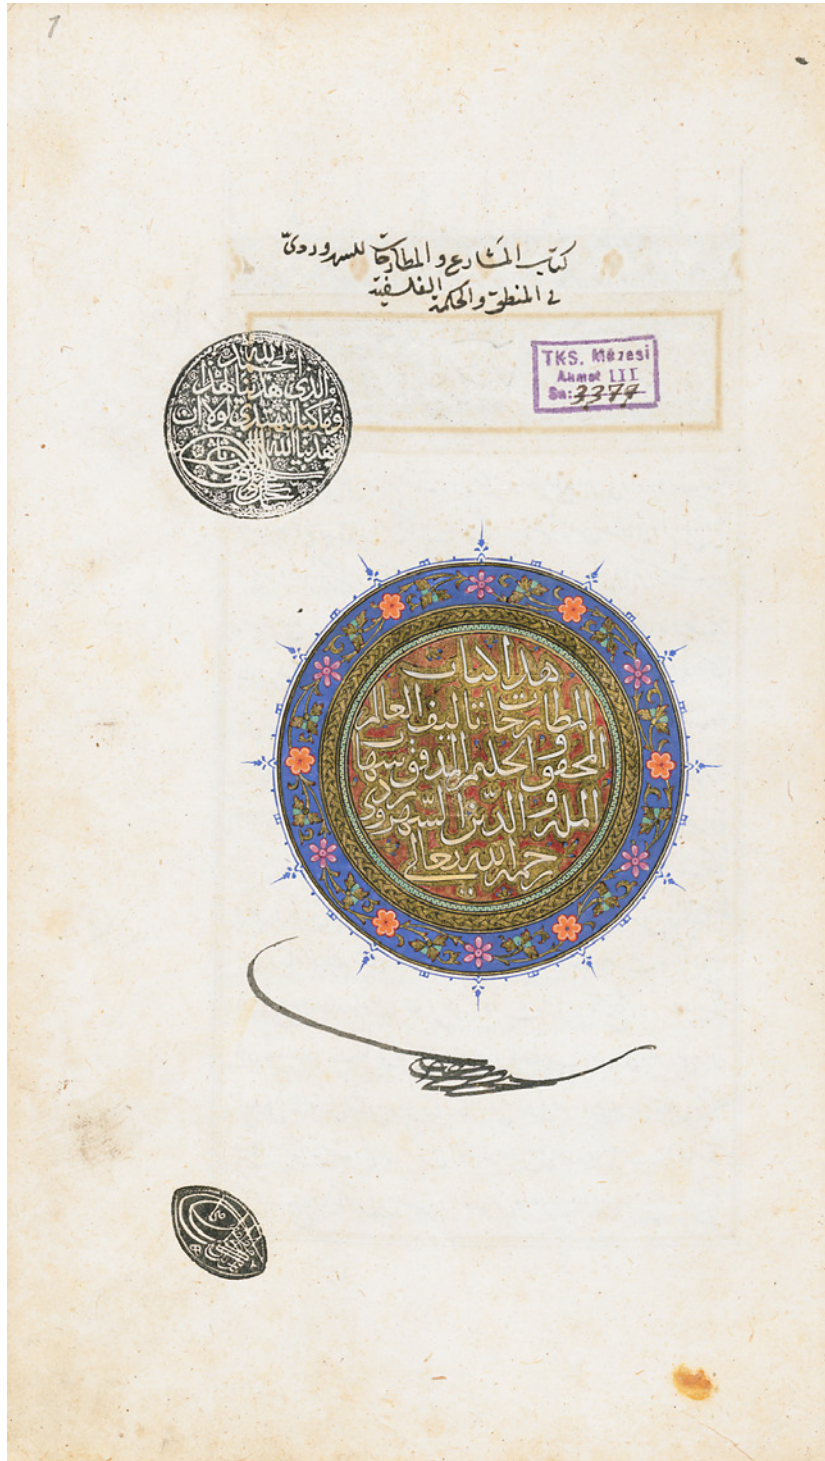 1
كتاب المشارع والمطارحات للسهروردي
في المنطق والحكمة الفلسفية
TKS. Müzesi
Ahmet III
Sa: 3377
الحمد لله
الذي هدينا لهذا
وما كنا لنهتدي لولا ان
هدينا الله
هذا كتاب
المطارحات تاليف العالم
المحقق والحكيم المدقق شهاب
الملة والدين السهروردي
رحمه الله تعالى